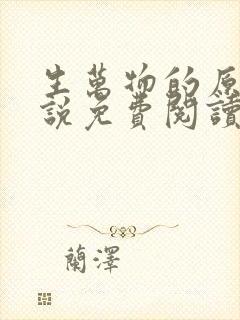 生萬物的原
說免費閱讀
蘭澤